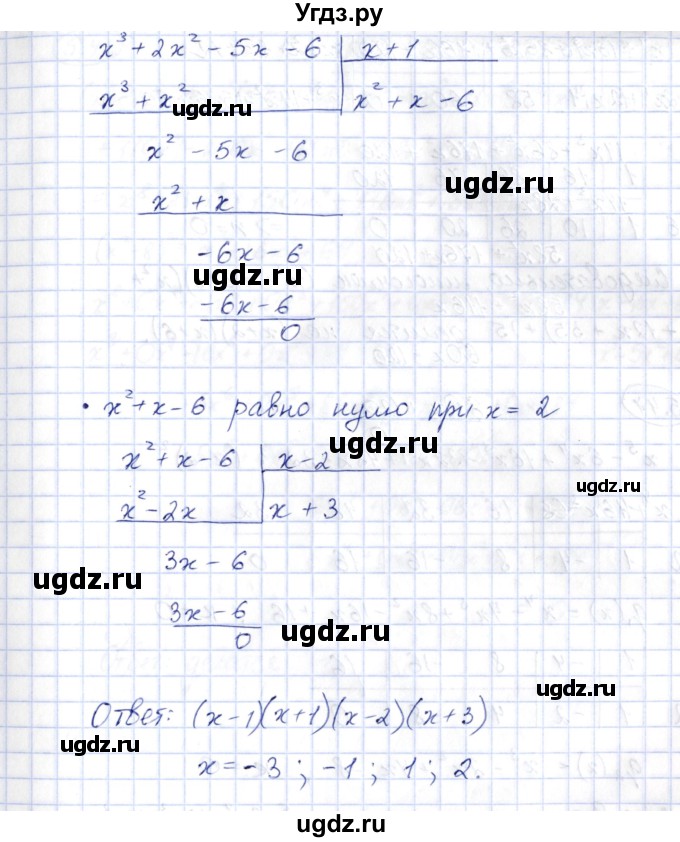 Угдз.ру
x³ + 2x² - 5x - 6 | x + 1
x³ + x² | x² + x - 6
ugdz.ru
x² - 5x - 6
ugdz.ru
x² + x
-6x - 6
ugdz.ru
-6x - 6
0
• x² + x - 6 равно нулю при x = 2
ugdz.ru
x² + x - 6 | x - 2
ugdz.ru
x² - 2x | x + 3
3x - 6
ugdz.ru
3x - 6
ugdz.ru
0
ugdz.ru
Ответ: (x-1)(x+1)(x-2)(x+3)
ugdz.ru
x = -3 ; -1 ; 1 ; 2.
ugdz.ru